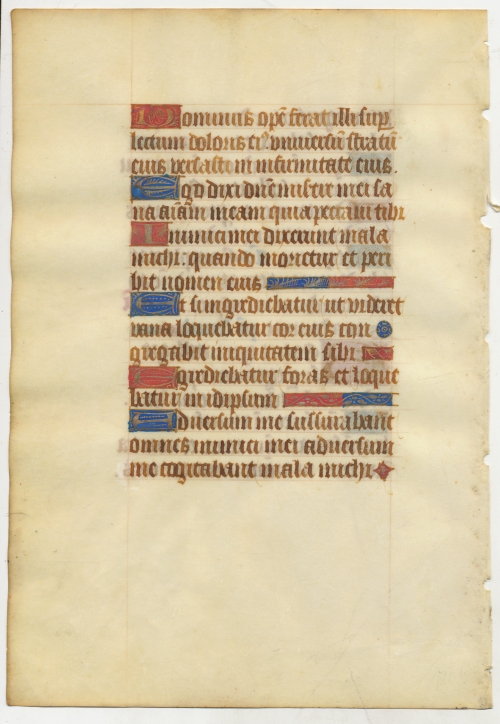 Dominus opē ferat illi sup
lectum doloris eiꝰ vniuersū stratū
eius versasti in infirmitate eius.
Ego dixi dn̄e misere mei sa
na aīam meam quia peccaui tibi
Inimici mei dixerunt mala
michi: quando morietur et peri
bit nomen eius
Et si ingrediebatur ut videret
vana loquebatur cor eius con
gregabit iniquitatem sibi
Egrediebatur foras et loque
batur in idipsum
Aduersum me susurrabant
omnes inimici mei aduersum
me cogitabant mala michi